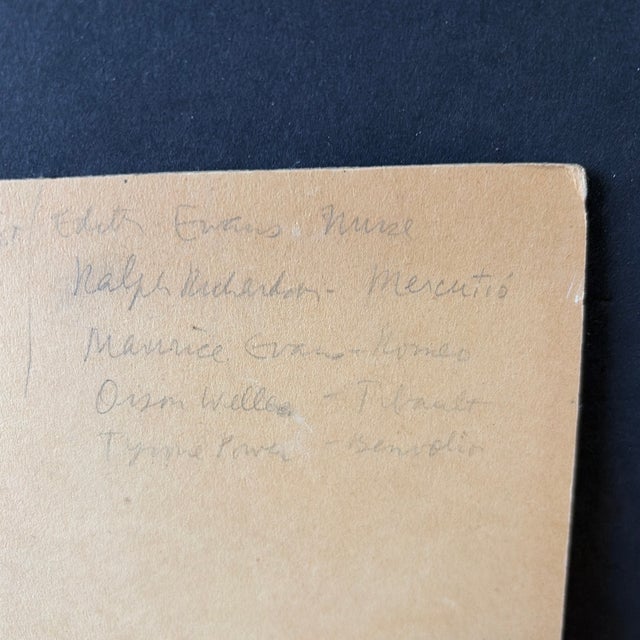 / Edith Evans - Nurse
Ralph Richardson - Mercutio
Maurice Evans - Romeo
Orson Welles - Tibault
Tyrone Power - Benvolio